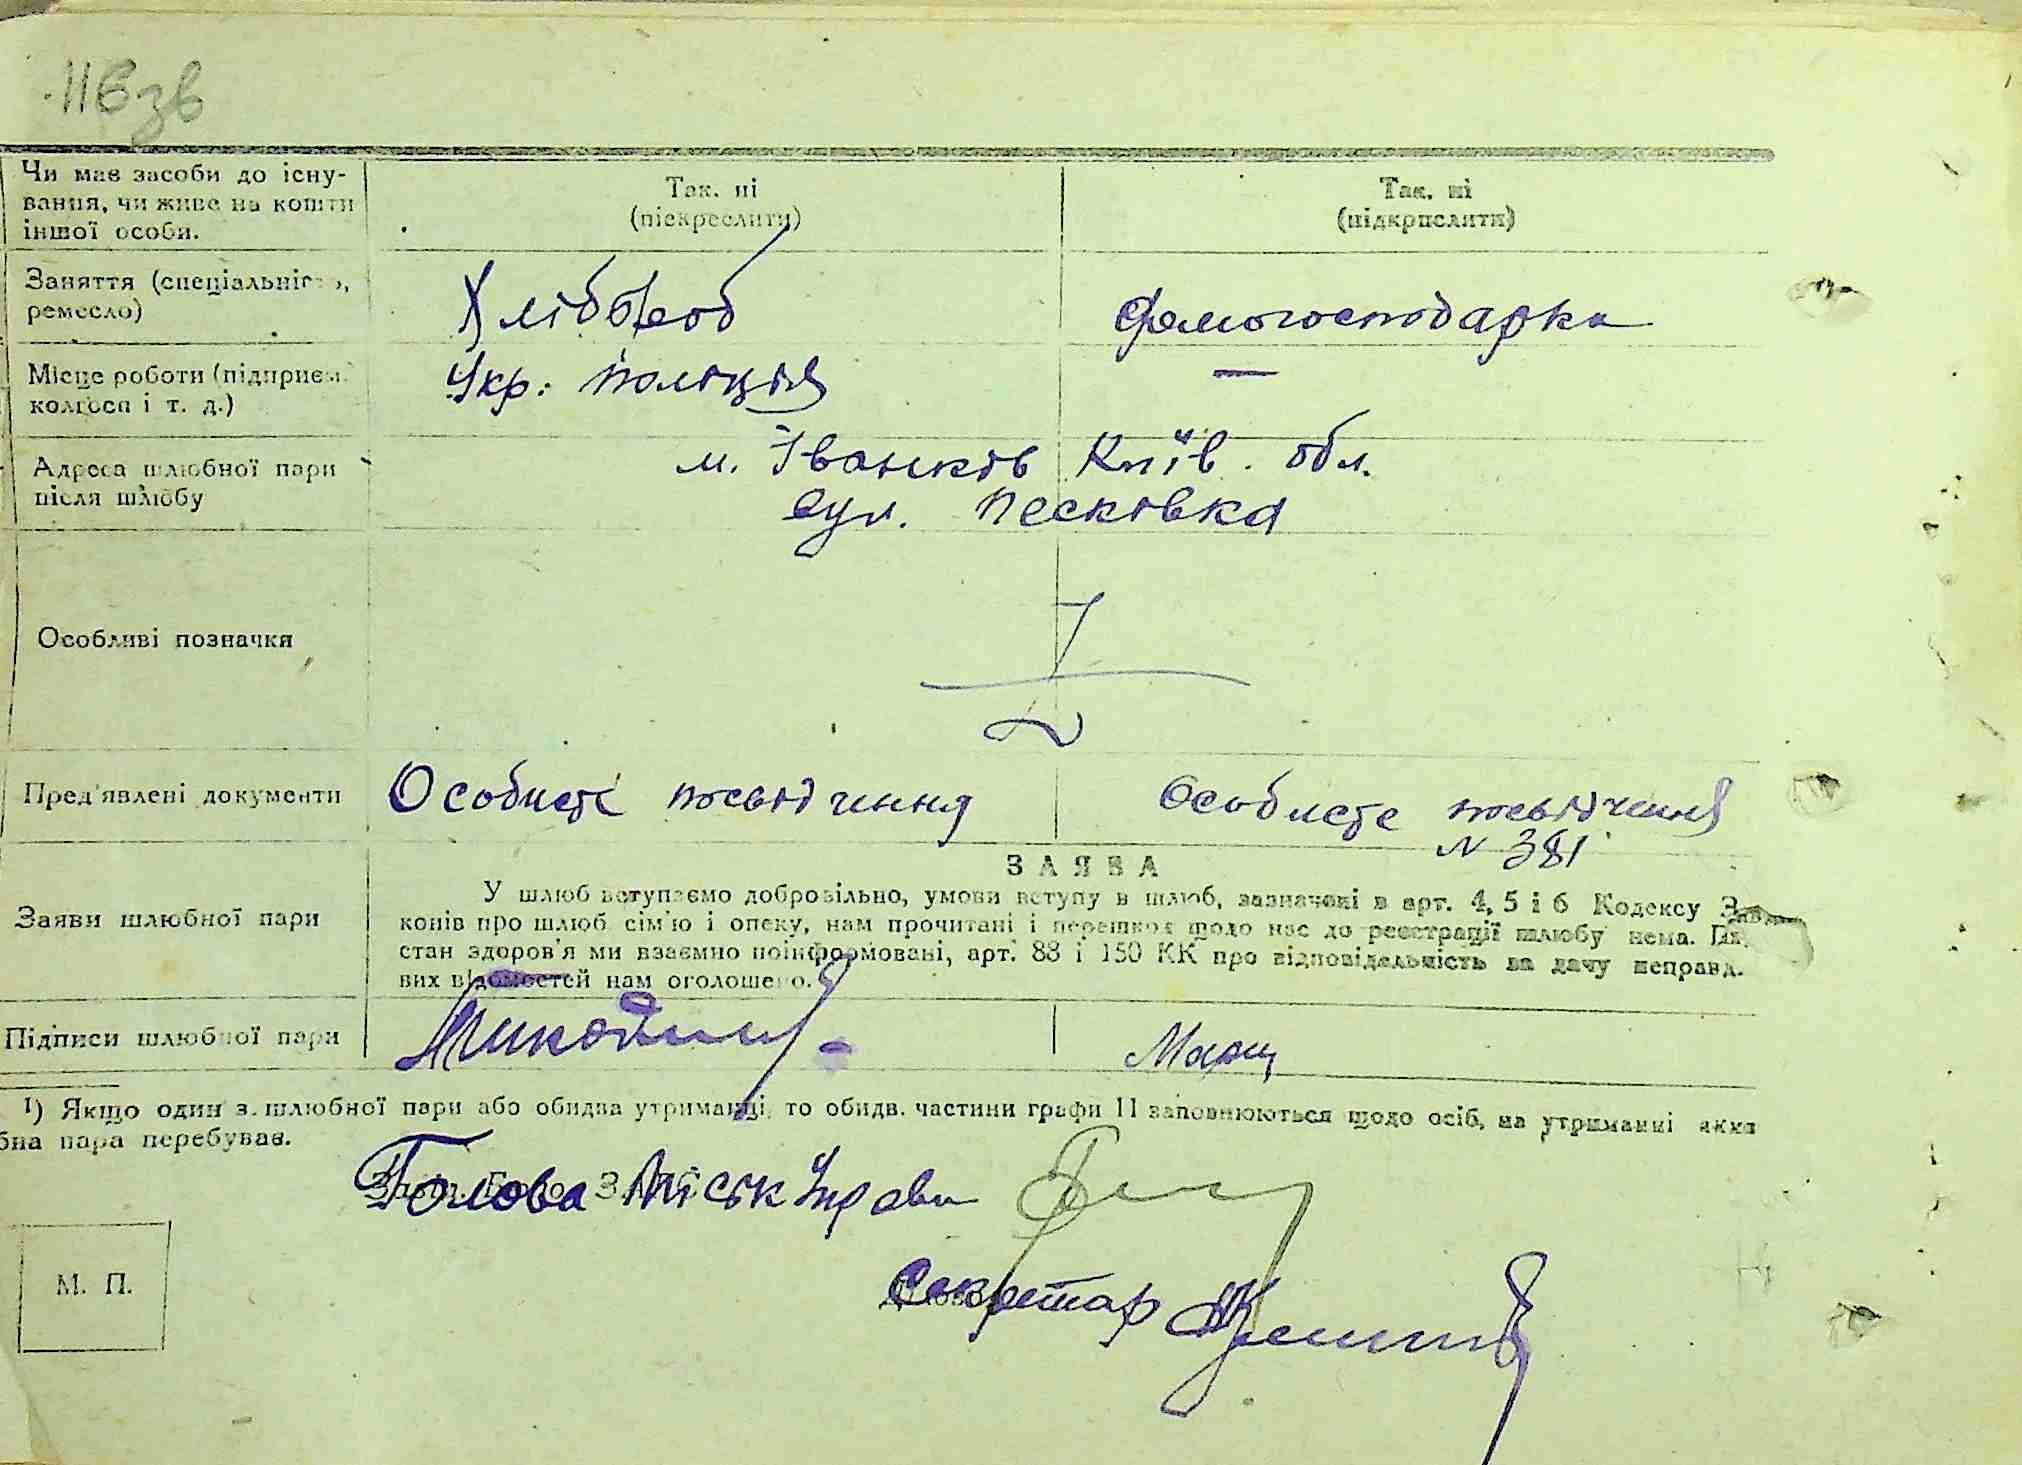 116зв
Чи має засоби до існу-
вання, чи живе на кошти
іншої особи.
Так. ні
(піскреслити)
Так. ні
(підкрислити)
Заняття (спеціальність,
ремесло)
Хлібороб
Домогосподарка
Місце роботи (підприєм.
колгосп і т. д.)
Укр: поліція
—
Адреса шлюбної пари
після шлюбу
м. Іванків Київ. обл.
вул. Песківка
Особливі позначки
Пред'явлені документи
Особисті посвідчення
Особисте посвідчення
N 381
Заяви шлюбної пари
ЗАЯВА
У шлюб вступаємо добровільно, умови вступу в шлюб, зазначені в арт. 4, 5 і 6 Кодексу За
конів про шлюб сім'ю і опеку, нам прочитані і перешкод щодо нас до реєстрації шлюбу нема. Пр
стан здоров'я ми взаємно поінформовані, арт. 88 і 150 КК про відповідельність за дачу неправд.
вих відомостей нам оголошено.
Підписи шлюбної пари
1) Якщо один з шлюбної пари або обидва утриманці, то обидв. частини графи 11 заповнюються щодо осіб, на утриманні яких
бна пара перебуває.
Голова Міськ Управи
Секретар
М. П.